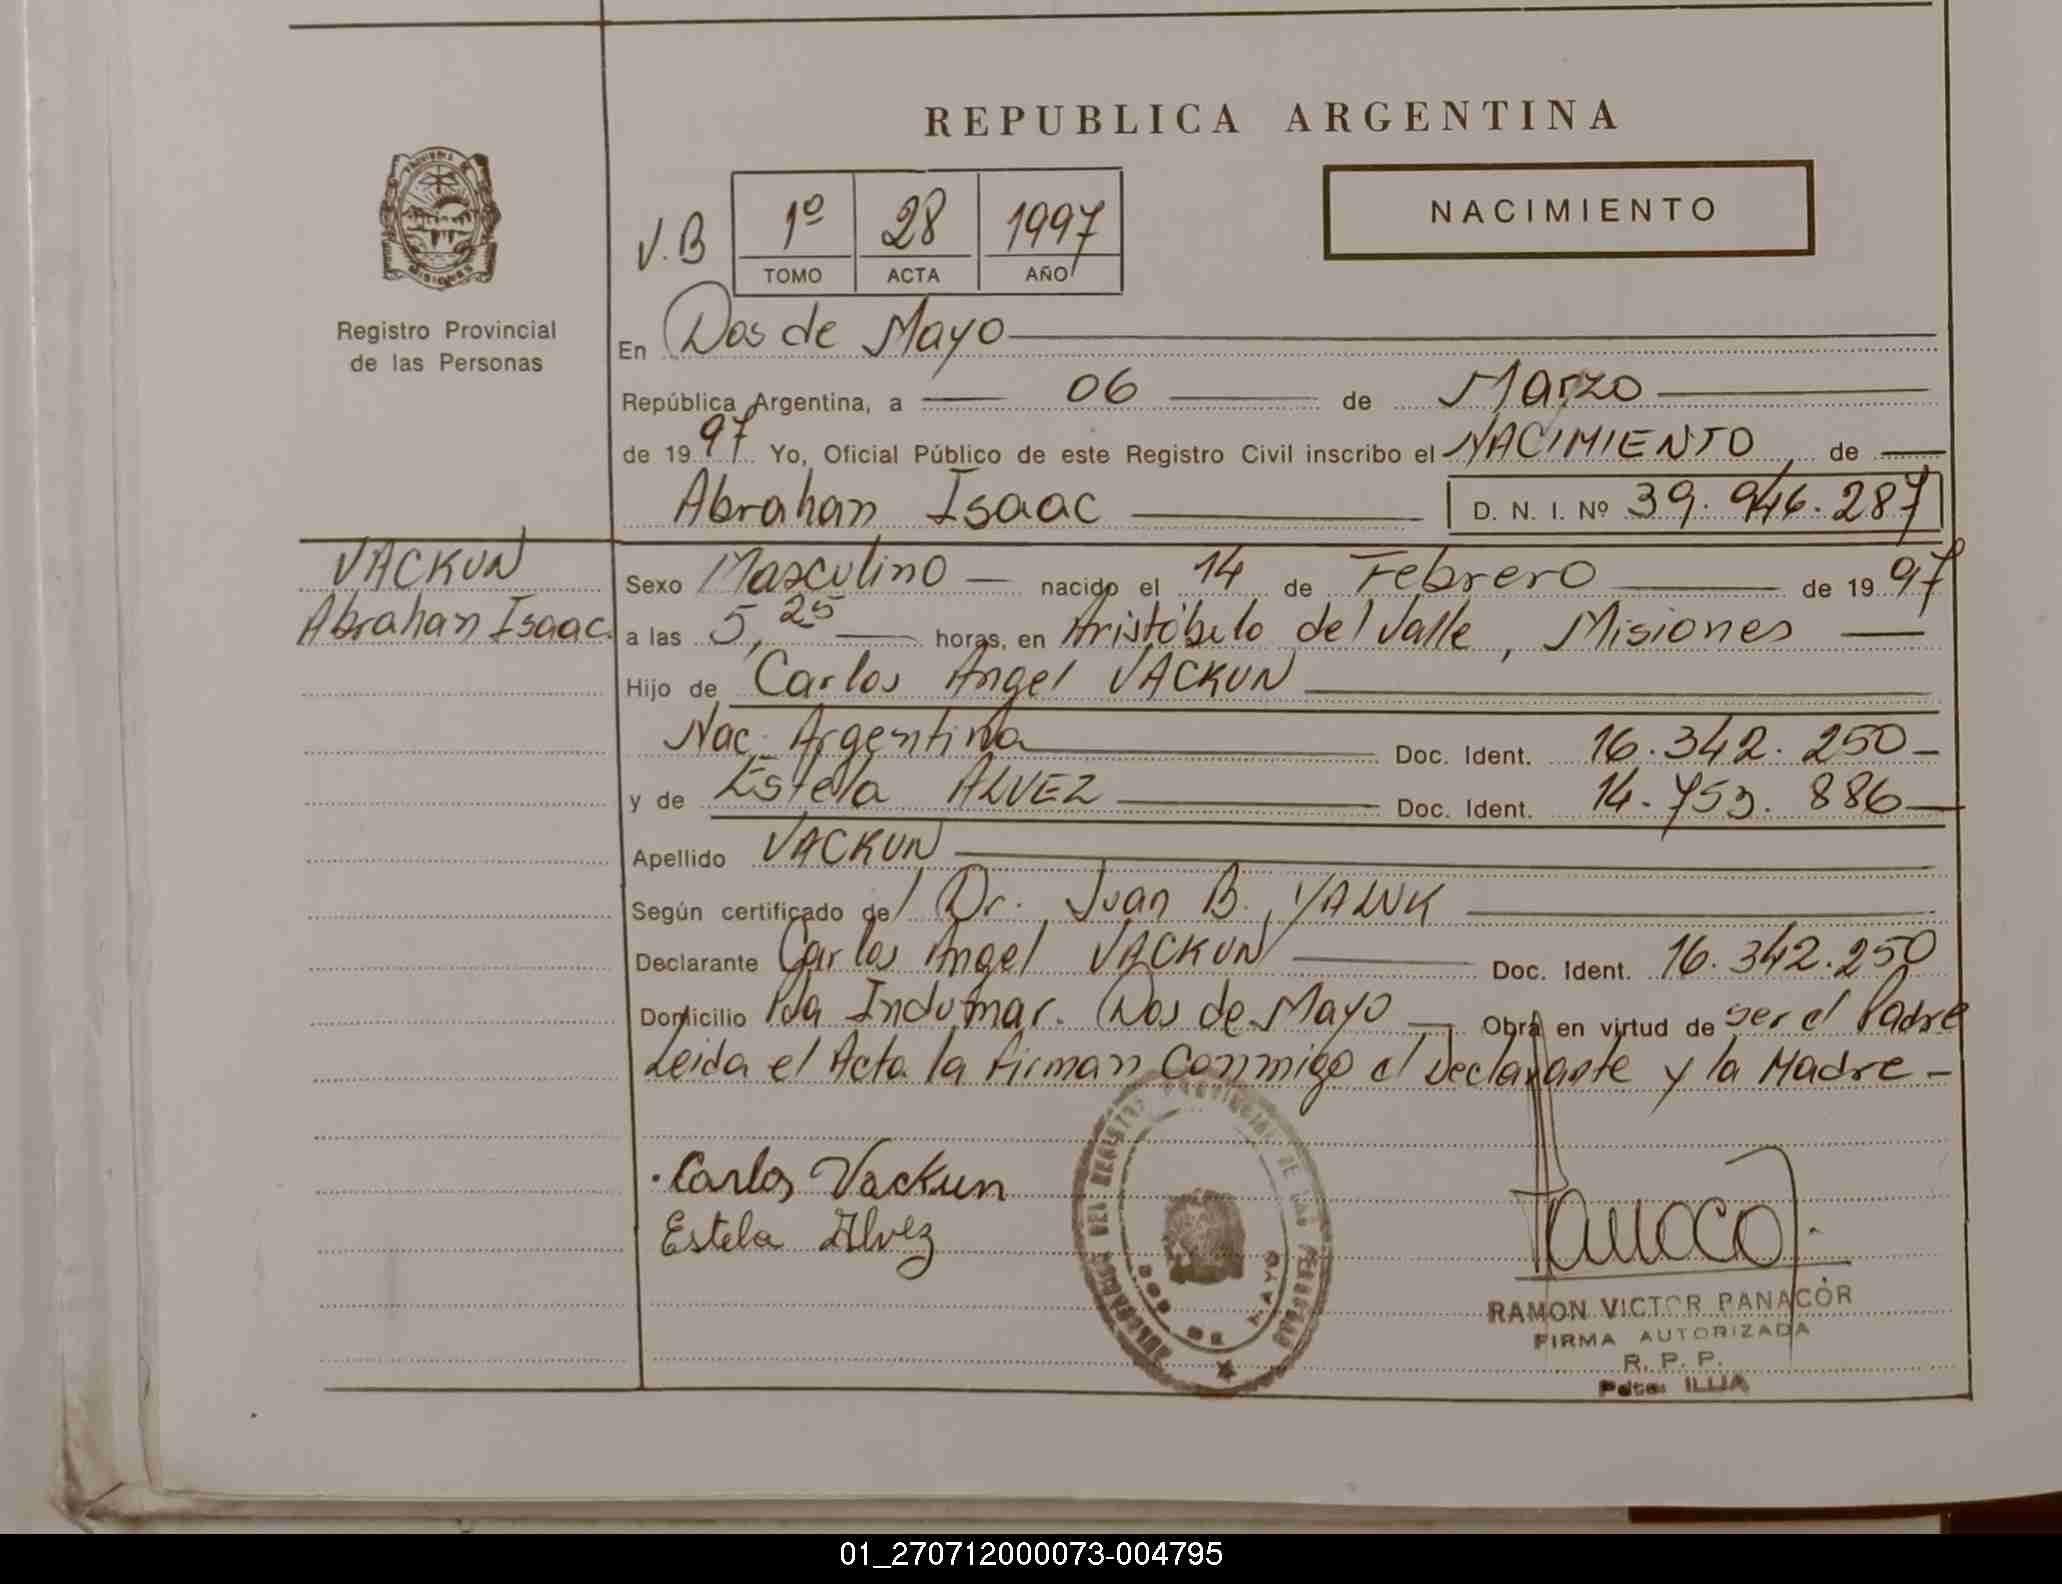 REPUBLICA ARGENTINA
NACIMIENTO
V.B
1º 28 1997
TOMO ACTA AÑO
PROVINCIA DE
MISIONES
Registro Provincial
de las Personas
En Dos de Mayo
República Argentina, a 06 de Marzo
de 1997 Yo, Oficial Público de este Registro Civil inscribo el NACIMIENTO de
Abrahan Isaac D. N. I. Nº 39.946.287
VACKUN
Abrahan Isaac
Sexo Masculino nacido el 14 de Febrero de 1997
a las 5,25 horas, en Aristóbulo del Valle, Misiones
Hijo de Carlos Angel VACKUN
Nac. Argentina Doc. Ident. 16.342.250
y de Estela ALVEZ Doc. Ident. 14.753.886
Apellido VACKUN
Según certificado del Dr. Juan B. YALUK
Declarante Carlos Angel VACKUN Doc. Ident. 16.342.250
Domicilio Pda Indumar. Dos de Mayo Obra en virtud de ser el Padre
Leida el Acta la firman Conmigo el Declarante y la Madre
Carlos Vackun
Estela Alvez
DEL REGISTRO PROVINCIAL DE LAS PERSONAS
DOS DE MAYO
RAMON VICTOR PANACÓR
FIRMA AUTORIZADA
R. P. P.
Pdte. ILLIA
01_270712000073-004795